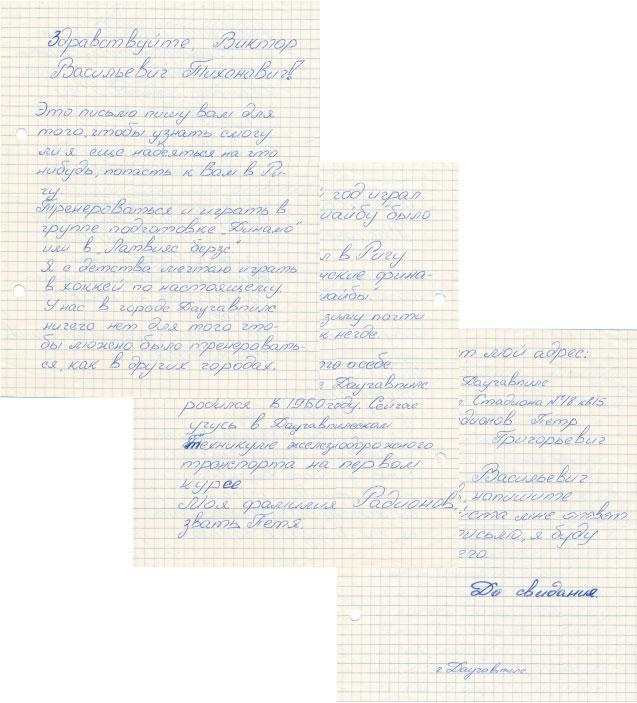 Здравствуйте, Виктор
Васильевич Тихонавич!
Это письмо пишу вам для
того, чтобы узнать смогу
ли я еще надеяться на что
нибудь, попасть к Вам в Ри-
гу.
Тренероваться и играть в
группе подготовке „Динамо"
или в „Латвияс берзс"
Я с детства мечтаю играть
в хоккей по настоящему.
У нас в городе Даугавпилс
ничего нет для того что-
бы можно было тренеровать-
ся, как в других городах.
год играл
шайбу было
л в Ригу
ские фина-
айбы."
зиму почти
к негде
о себе
г Даугавпилс
родился в 1960 году. Сейчас
учусь в Даугавпилсском
техникуме железнодорожного
транспорта на первом
курсе
Моя фамилия Радионов,
звать Петя.
т мой адрес:
Даугавпилс
Стадиона №18 кв15.
дионов Петр
Григорьевич
Васильевич
напишите
ста мне ответ
письмо, я буду
его.
До свидания
г. Даугавпилс